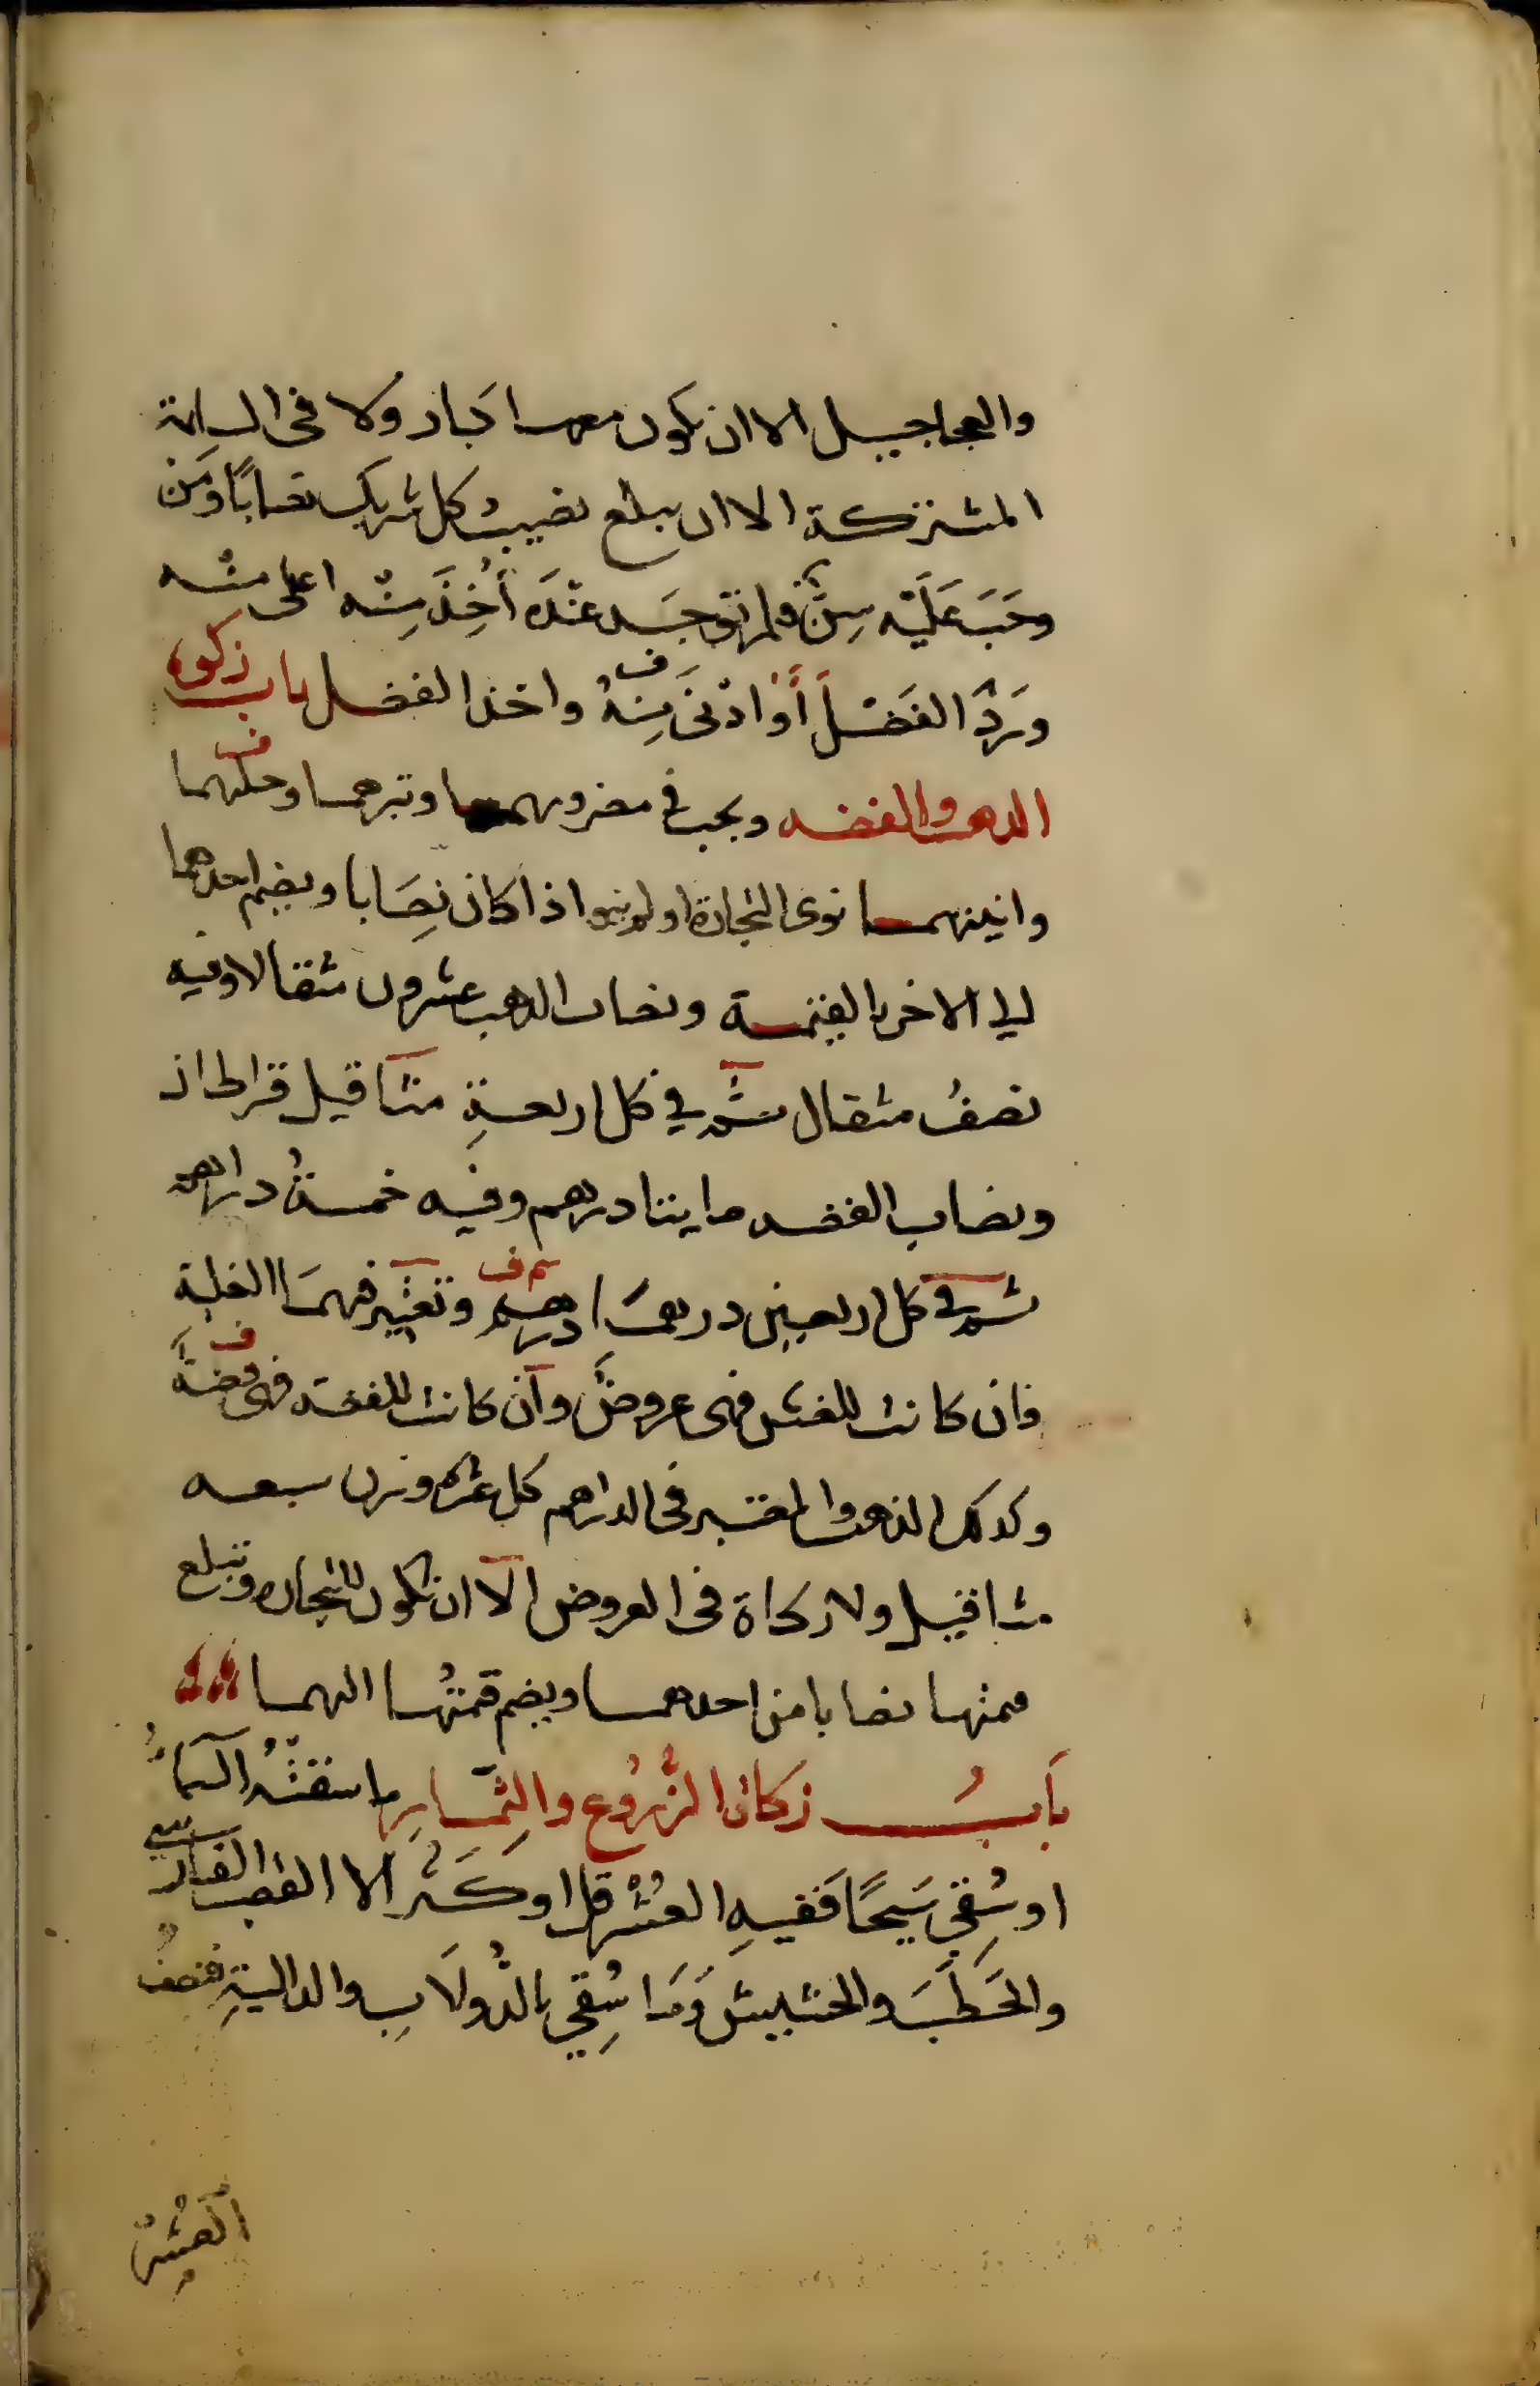 والعجاجيل الا ان يكون معها كبار ولا فى السايمة
المشتركة الا ان يبلغ نصيب كل شريك نصابًا ومَن
وجَبَ عَلَيْه سِنٌّ فلم توجد عنْدَه أُخِذَ مِنْه اعلى منْه
ورَدَّ الفَضْلَ أوْ ادْنَى مِنْهُ واخذ الفضل باب زكوة
الذهب والفضه ويجب في مضروبهما وتبرهما وحليهما
وانيتهما نوى التجارة اولم ينو اذا كان نِصَابا ويضم احدهما
الى الاخر بالقيمة ونصاب الذهب عشرون مثقالا وفيه
نصفُ مثقال ثم في كل اربعةِ مثاقيل قراطان
ونصاب الفضه مايتا درهم وفيه خمسةُ دراهم
ثم في كل اربعين درهمًا درهم وتعتبر فيهمَا الغلبة
فان كانت للغش فهى عروضٌ وان كانت للفضه فهى فضةٌ
وكذلك الذهب والمعتبر فى الدراهم كل عشره وزن سبعه
مثاقيل ولا زكاة فى العروض الا ان تكون للتجاره وتبلغ
قيمتها نصابا من احدهما ويضم قيمتُها اليهما
بَابُ زكاة الزُّرُوع والثِّمَارِ ما سقتْهُ السَّمَاءُ
او سُقِيَ سَيْحًا فَفيهِ العُشْر قل او كَثُر الا القصب الفارسي
والحَطَبَ والحشيش وَمَا سُقِيَ بالدُّولَابِ والداليةِ فنصفُ
العُشْرِ